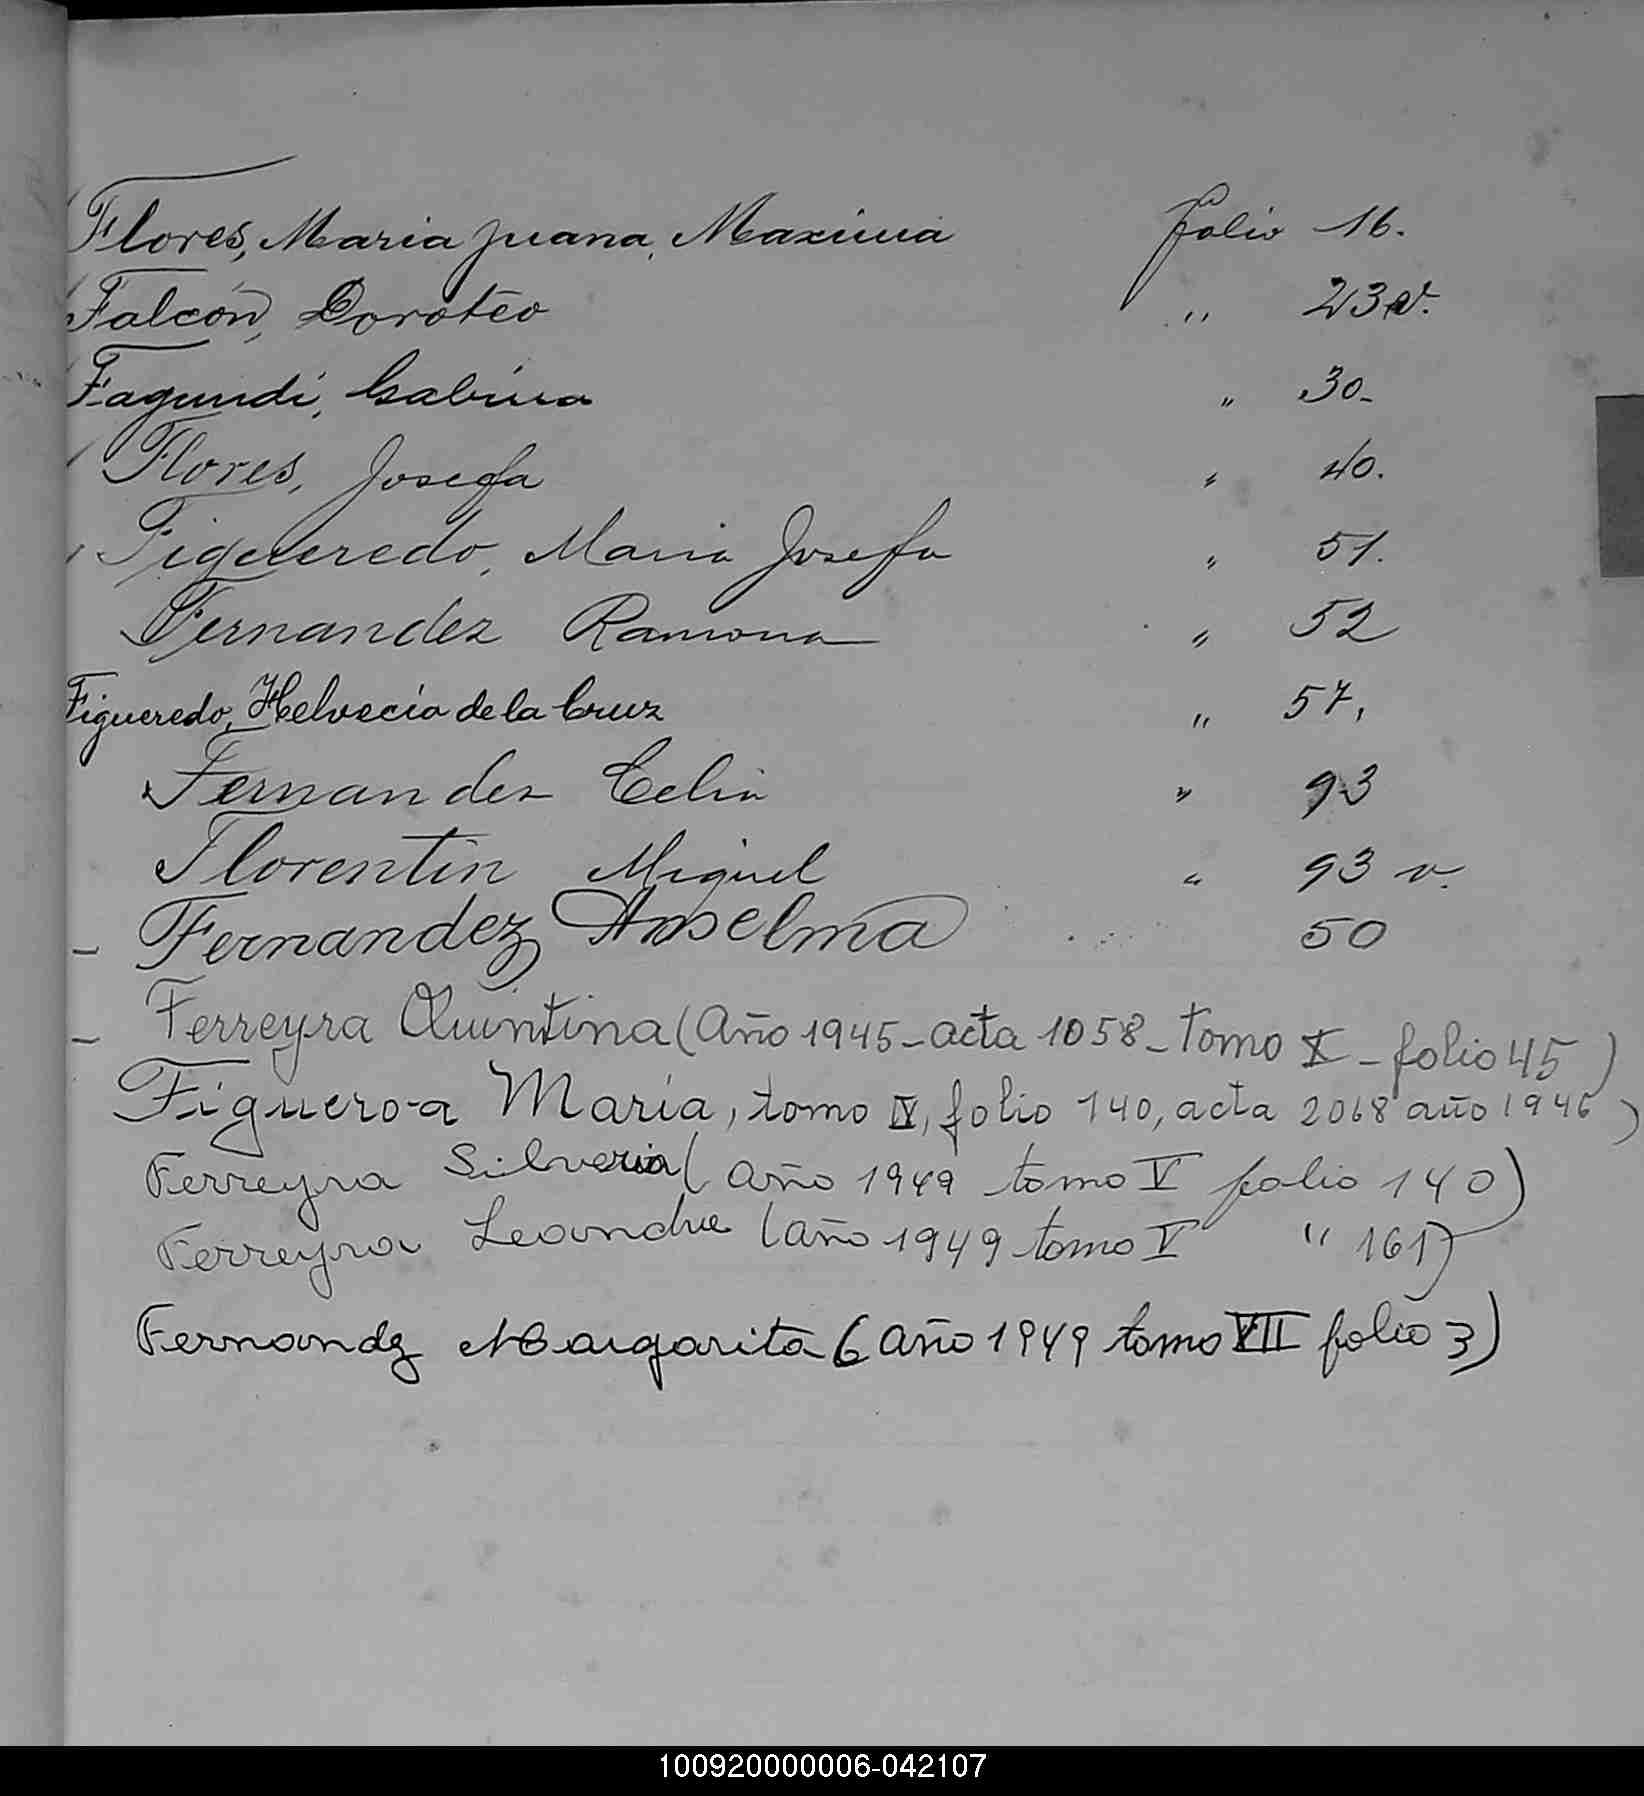 Flores, Maria Juana, Maxima folio 16.
Falcón, Doroteo " 23v.
Fagundi, Gabina " 30-
Flores, Josefa " 40.
Figueredo, Maria Josefa " 51.
Fernandez Ramona " 52
Figueredo, Helvecia de la Cruz " 57.
Fernandez Celia " 93
Florentin Miguel " 93 v.
- Fernandez Anselma 50
- Ferreyra Quintina (Año 1945 - acta 1058 - tomo X - folio 45)
Figueroa María, tomo IV, folio 140, acta 2068 año 1946)
Ferreyra Silveria (año 1949 tomo V folio 140)
Ferreyra Leandra (año 1949 tomo V " 161)
Fernandz Margarita (año 1949 tomo VII folio 3)
100920000006-042107